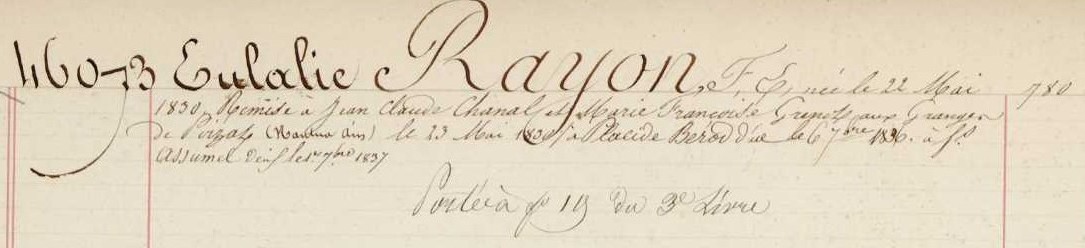 46073 Eulalie Rayon, F. E, née le 22 Mai 780
1830, Remise à Jean Claude Chanal et Marie Françoise aux Granges
de (Nantua Ain) le 23 Mai 1830 à Placide le 6 7bre 1836. à
Assumel le 1er 7bre 1837
Portée à fo 19 du 3e Livre